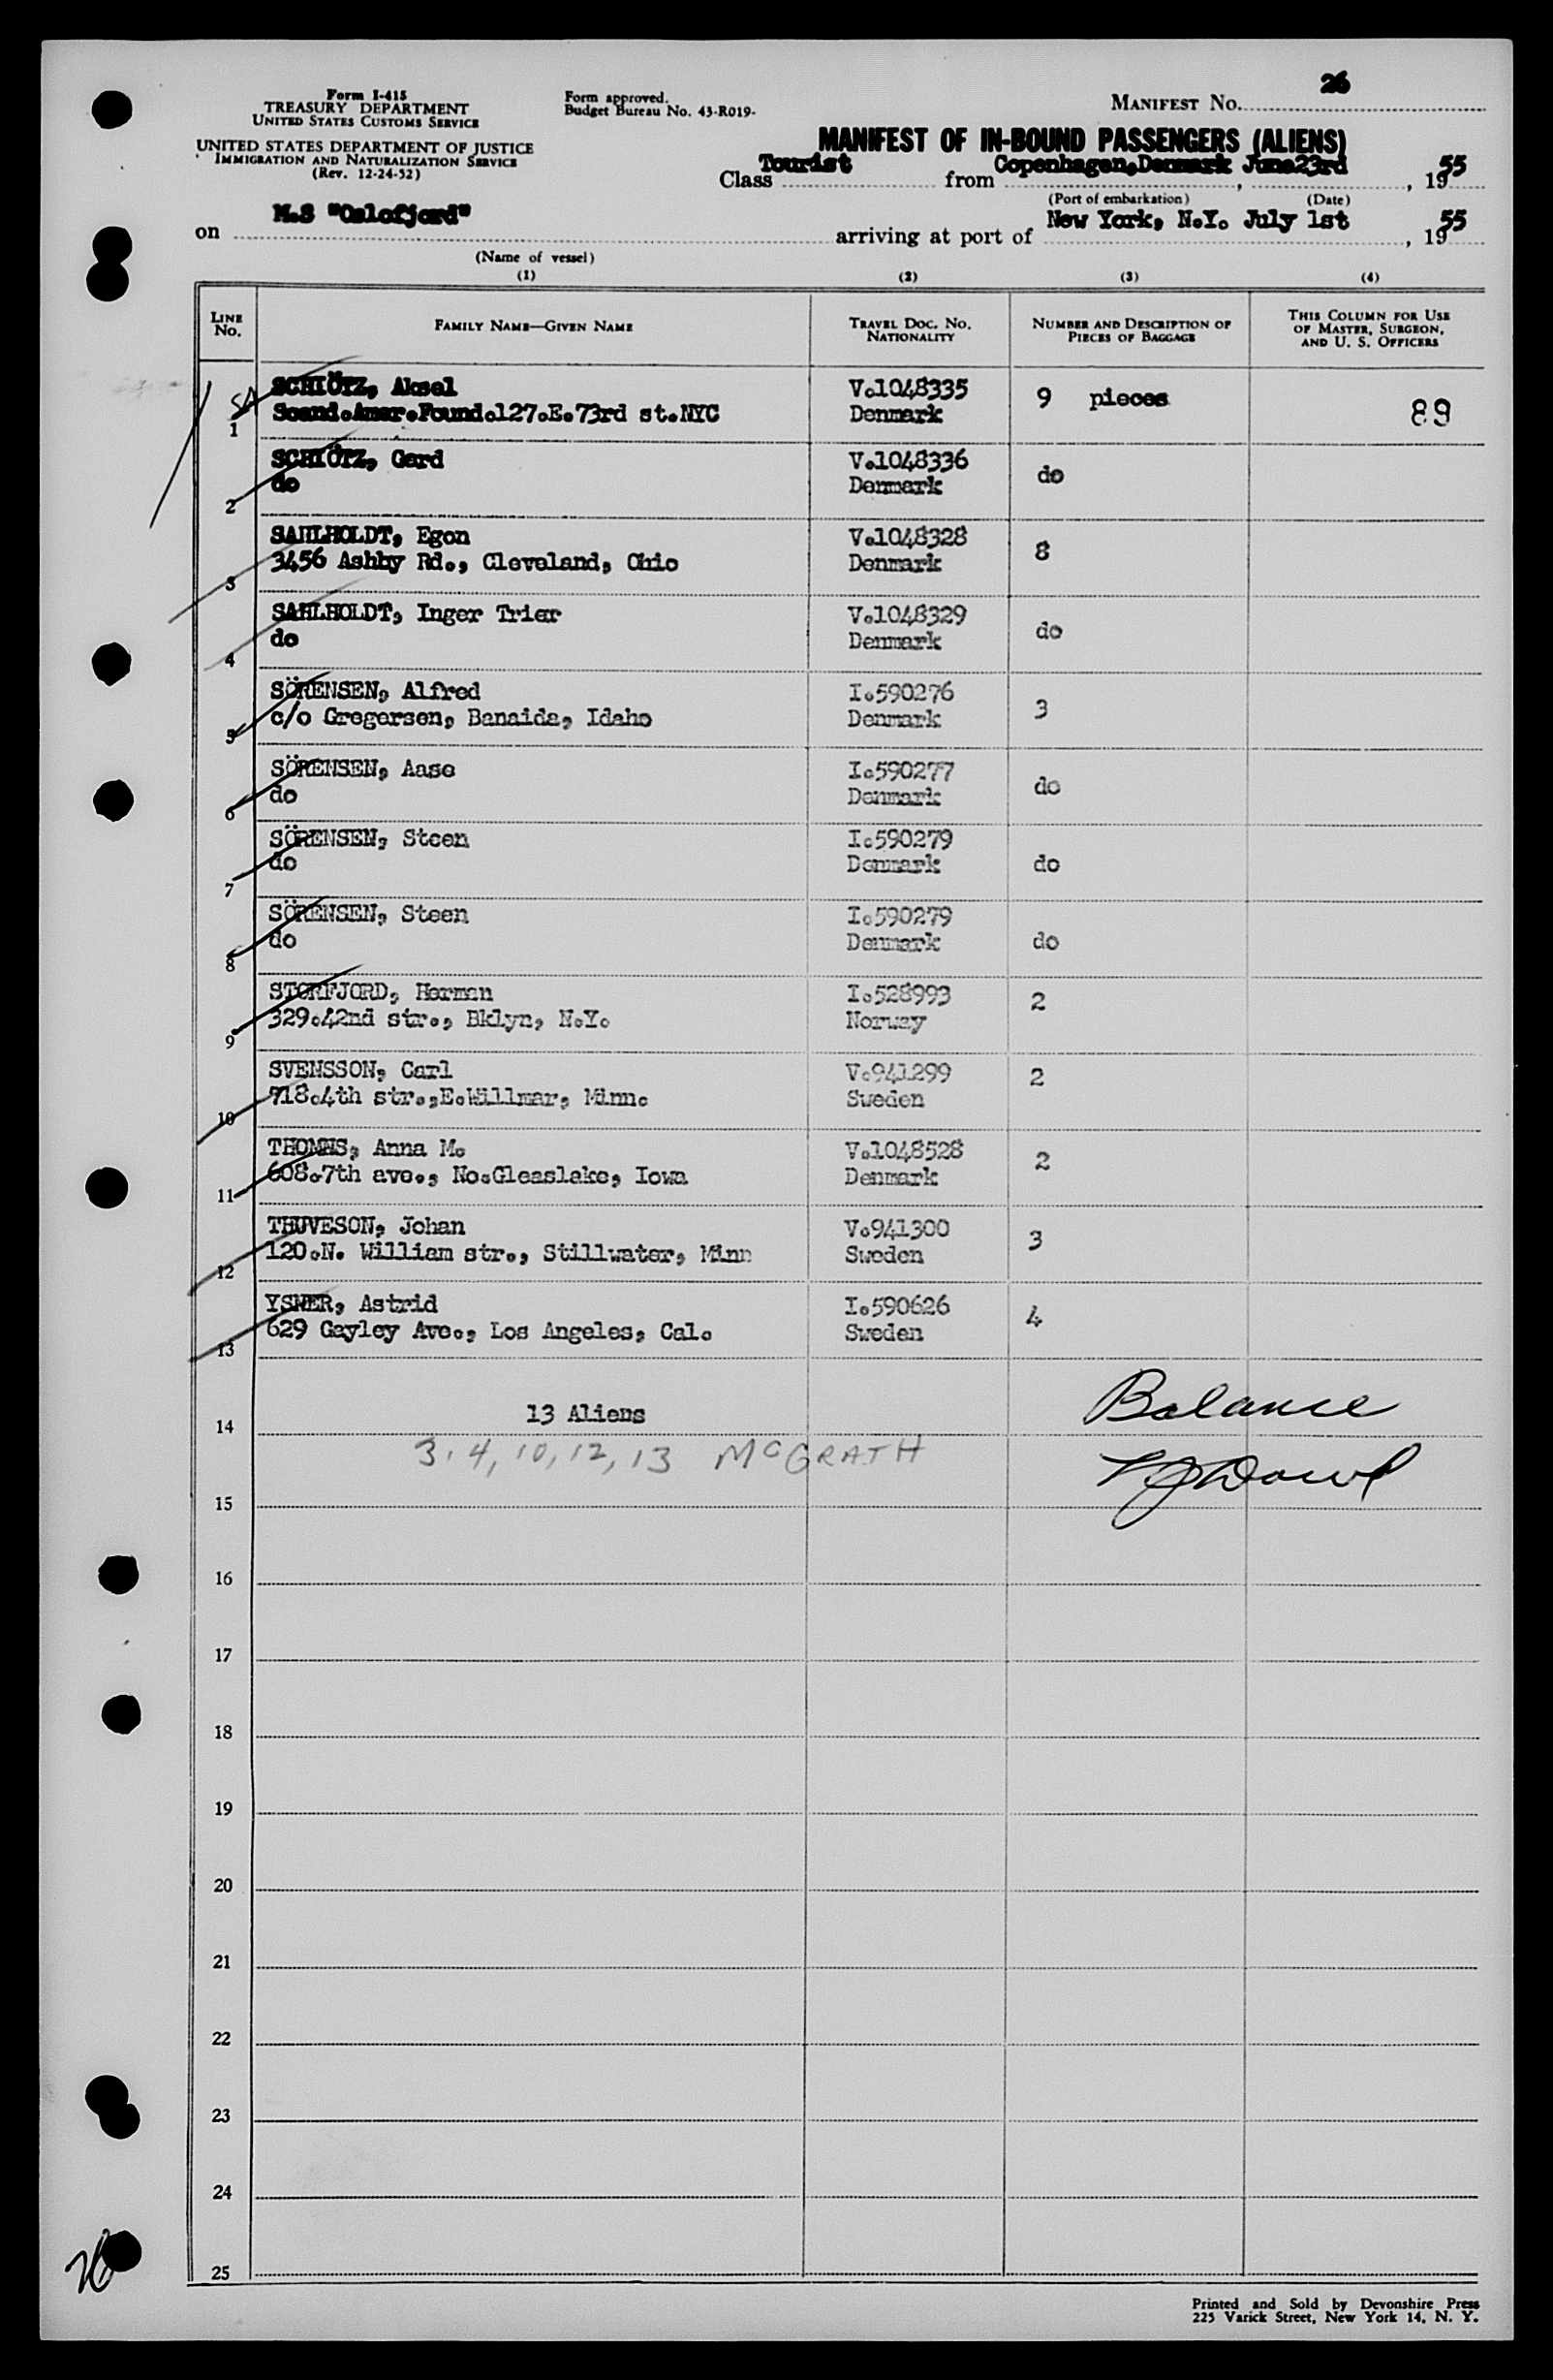 Form I-415
TREASURY DEPARTMENT
UNITED STATES CUSTOMS SERVICE
UNITED STATES DEPARTMENT OF JUSTICE
IMMIGRATION AND NATURALIZATION SERVICE
(Rev. 12-24-52)
Form approved.
Budget Bureau No. 43-R019-
MANIFEST No. 26
MANIFEST OF IN-BOUND PASSENGERS (ALIENS)
Class Tourist from Copenhagen,Denmark June23rd, 1955
(Port of embarkation) (Date)
on M.S "Oslofjord" arriving at port of New York, N.Y. July 1st, 1955
(Name of vessel)
(1) (2) (3) (4)
LINE No. FAMILY NAME—GIVEN NAME TRAVEL DOC. NO. NATIONALITY NUMBER AND DESCRIPTION OF PIECES OF BAGGAGE THIS COLUMN FOR USE OF MASTER, SURGEON, AND U. S. OFFICERS
SA
1 SCHIÖTZ, Aksel V.1048335 9 pieces 89
Scand.Amer.Found.127.E.73rd st.NYC Denmark
2 SCHIÖTZ, Gerd V.1048336 do
do Denmark
3 SAHLHOLDT, Egon V.1048328 8
3456 Ashby Rd., Cleveland, Ohio Denmark
4 SAHLHOLDT, Inger Trier V.1048329 do
do Denmark
5 SÖRENSEN, Alfred I.590276 3
c/o Gregersen, Banaida, Idaho Denmark
6 SÖRENSEN, Aase I.590277 do
do Denmark
7 SÖRENSEN, Steen I.590279 do
do Denmark
8 SÖRENSEN, Steen I.590279 do
do Denmark
9 STORFJORD, Herman I.528993 2
329.42nd str., Bklyn, N.Y. Norway
10 SVENSSON, Carl V.941299 2
718.4th str.,E.Willmar, Minn. Sweden
11 THOMMS, Anna M. V.1048528 2
608.7th ave., No.Gleaslake, Iowa Denmark
12 THUVESON, Johan V.941300 3
120.N. William str., Stillwater, Minn Sweden
13 YSNER, Astrid I.590626 4
629 Gayley Ave., Los Angeles, Cal. Sweden
14 13 Aliens Balance
3, 4, 10, 12, 13 McGRATH
15
16
17
18
19
20
21
22
23
24
25
26
Printed and Sold by Devonshire Press
225 Varick Street, New York 14, N. Y.